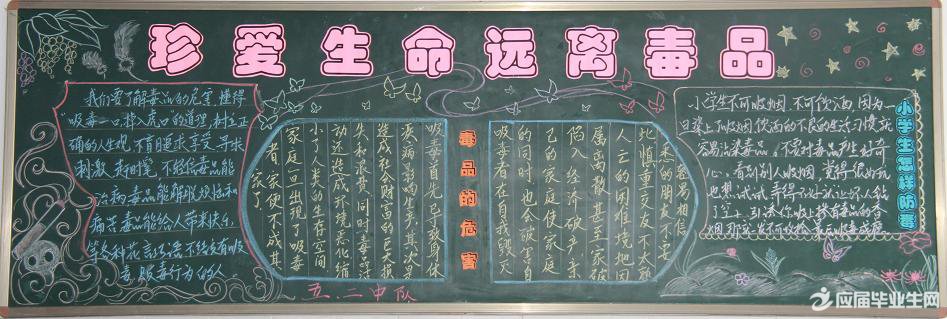 珍爱生命远离毒品
我们要了解毒品的危害，懂得
“吸毒一口，掉入虎口”的道理，树立正
确的人生观，不盲目追求享受，寻求
刺激，赶时髦，不轻信毒品能
治病，毒品能解脱烦恼和
痛苦，毒品能给人带来快乐
等各种花言巧语，不结交有吸
毒、贩毒行为的人。
毒品的危害
吸毒首先导致身体
疾病，影响生产，其次是
造成社会财富的巨大损
失和浪费，同时毒品活
动还造成环境恶化，缩
小了人类的生存空间
家庭一旦出现了吸毒
者，家便不成其
家了。
吸毒者在自我毁灭
的同时，也会破害自
己的家庭，使家庭
陷入经济破产、亲
属离散，甚至家破
人亡的困难境地，因
此慎重交友，不太熟
悉的朋友不要
容易相信
小学生怎样防毒
小学生不可吸烟，不可饮酒，因为一
旦染上了吸烟、饮酒的不良的生活习惯，就
容易沾染毒品，不要对毒品产生好奇
心，看别人吸烟，觉得很好玩
也想试试
五.二中队
应届毕业生网